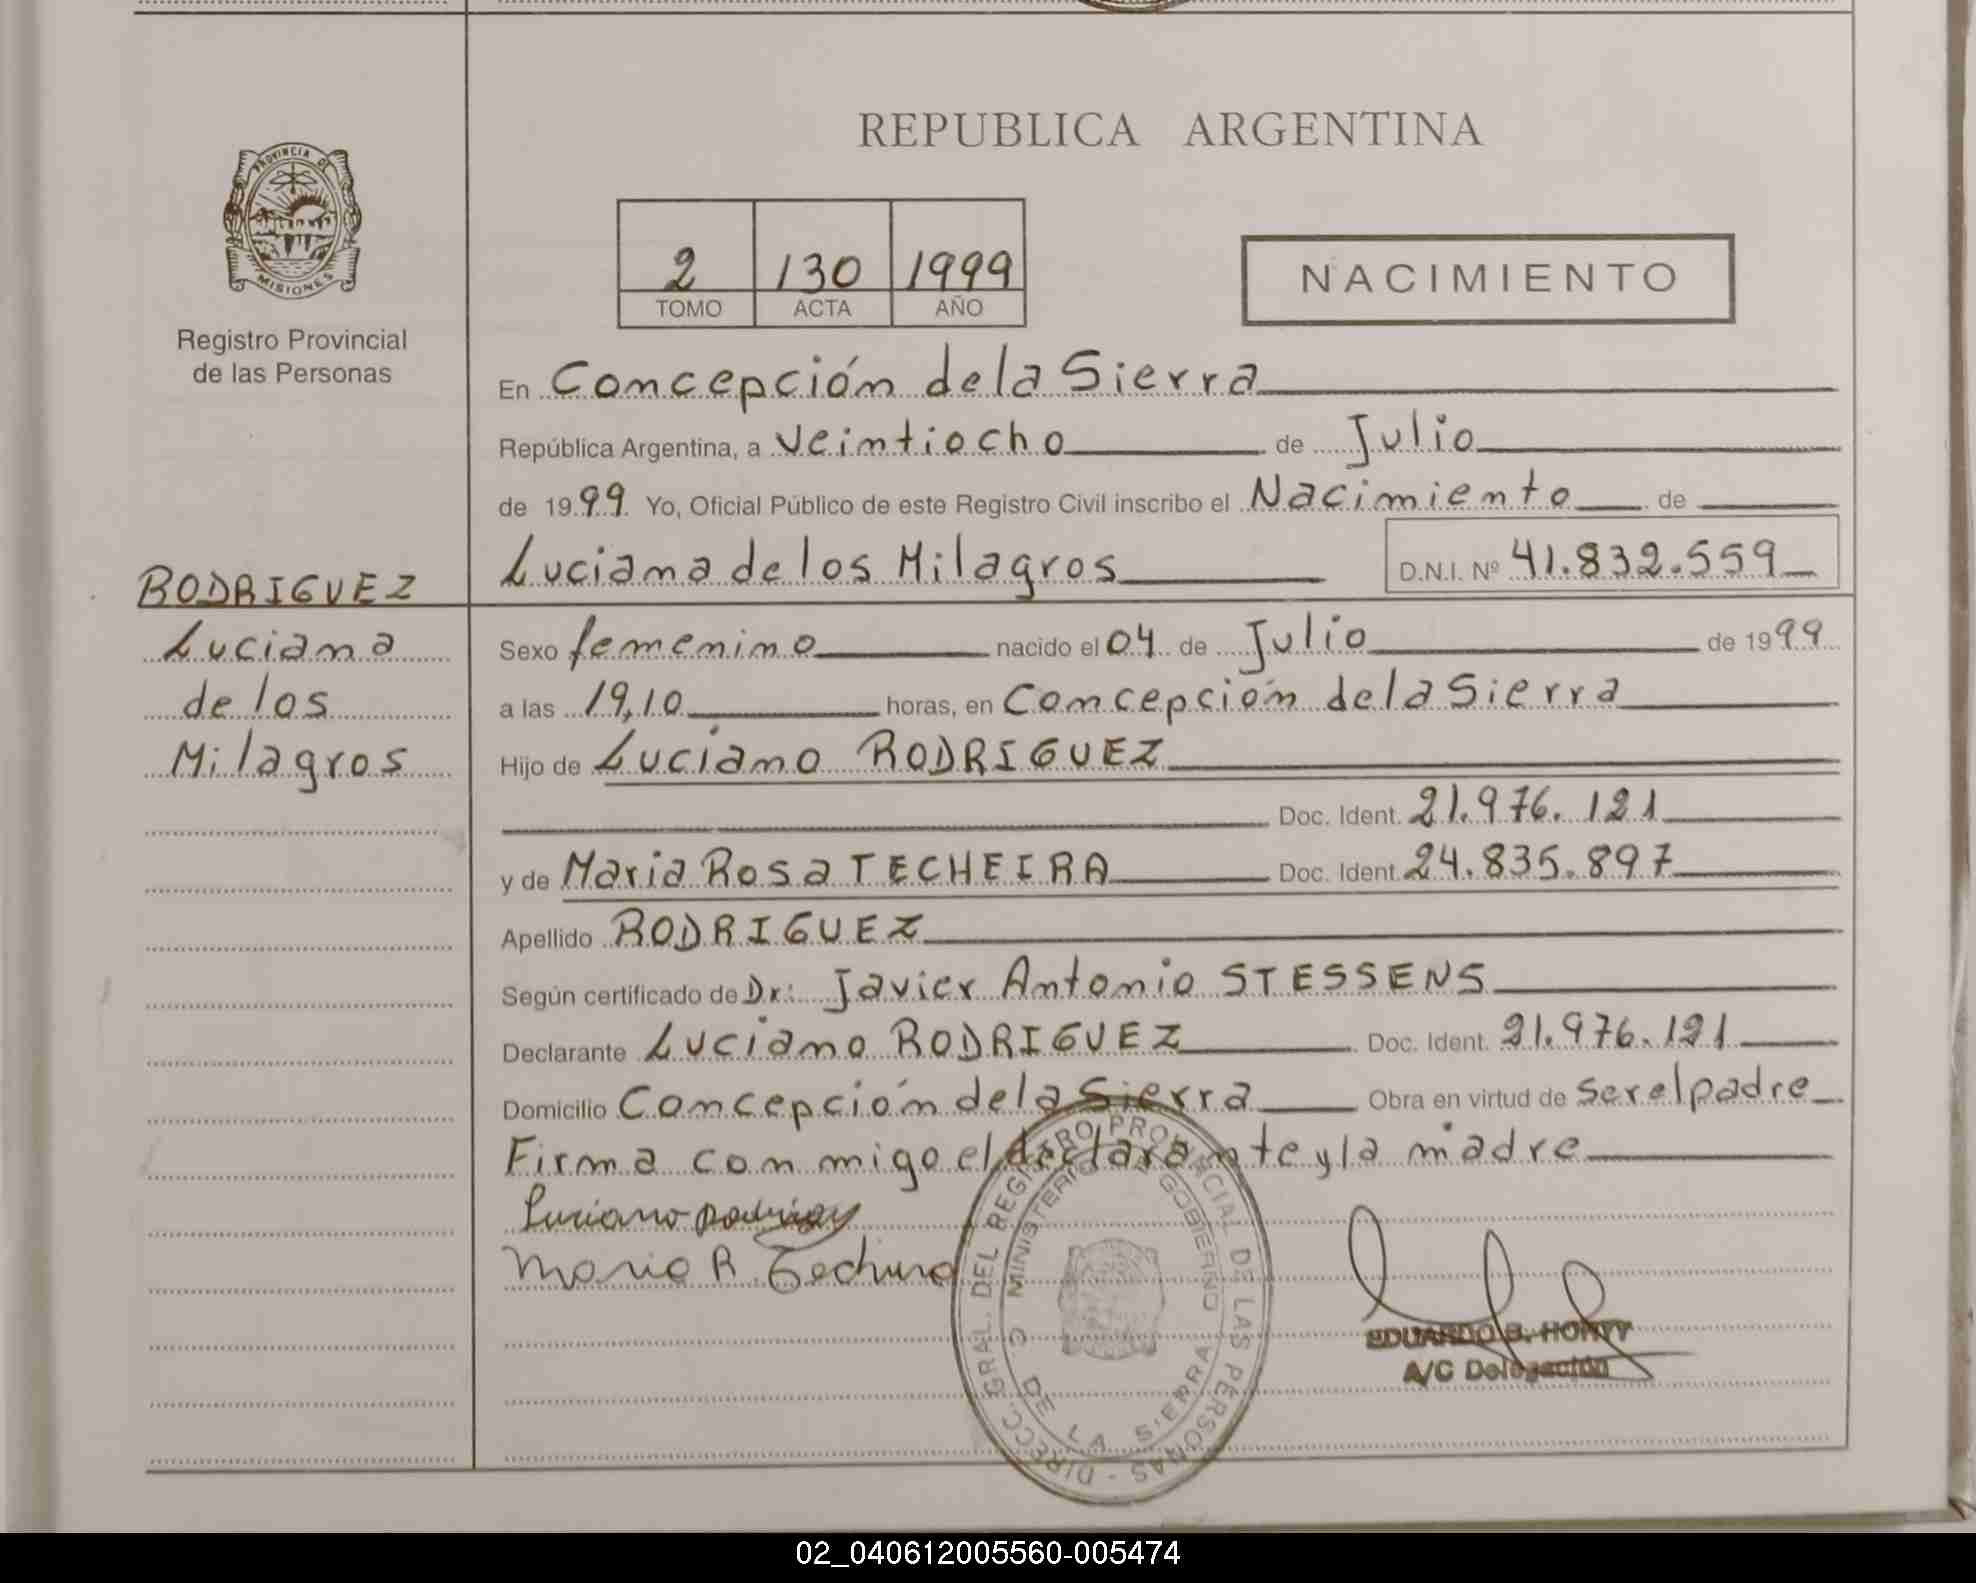 REPUBLICA ARGENTINA
PROVINCIA DE MISIONES
Registro Provincial
de las Personas
2 130 1999
TOMO ACTA AÑO
NACIMIENTO
En Concepción de la Sierra
República Argentina, a Veintiocho de Julio
de 1999 Yo, Oficial Público de este Registro Civil inscribo el Nacimiento de
Luciana de los Milagros D.N.I. Nº 41.832.559
RODRIGUEZ
Luciana
de los
Milagros
Sexo femenino nacido el 04 de Julio de 1999
a las 19,10 horas, en Concepción de la Sierra
Hijo de Luciano RODRIGUEZ
Doc. Ident. 21.976.121
y de Maria Rosa TECHEIRA Doc. Ident. 24.835.897
Apellido RODRIGUEZ
Según certificado de Dr: Javier Antonio STESSENS
Declarante Luciano RODRIGUEZ Doc. Ident. 21.976.121
Domicilio Concepción de la Sierra Obra en virtud de ser el padre
Firma conmigo el declarante y la madre
Luciano
Maria R.
DIRECC. GRAL. DEL REGISTRO PROVINCIAL DE LAS PERSONAS -
MINISTERIO GOBIERNO
DE LA SIERRA
EDUARDO B. HONTY
A/C Delegación
02_040612005560-005474